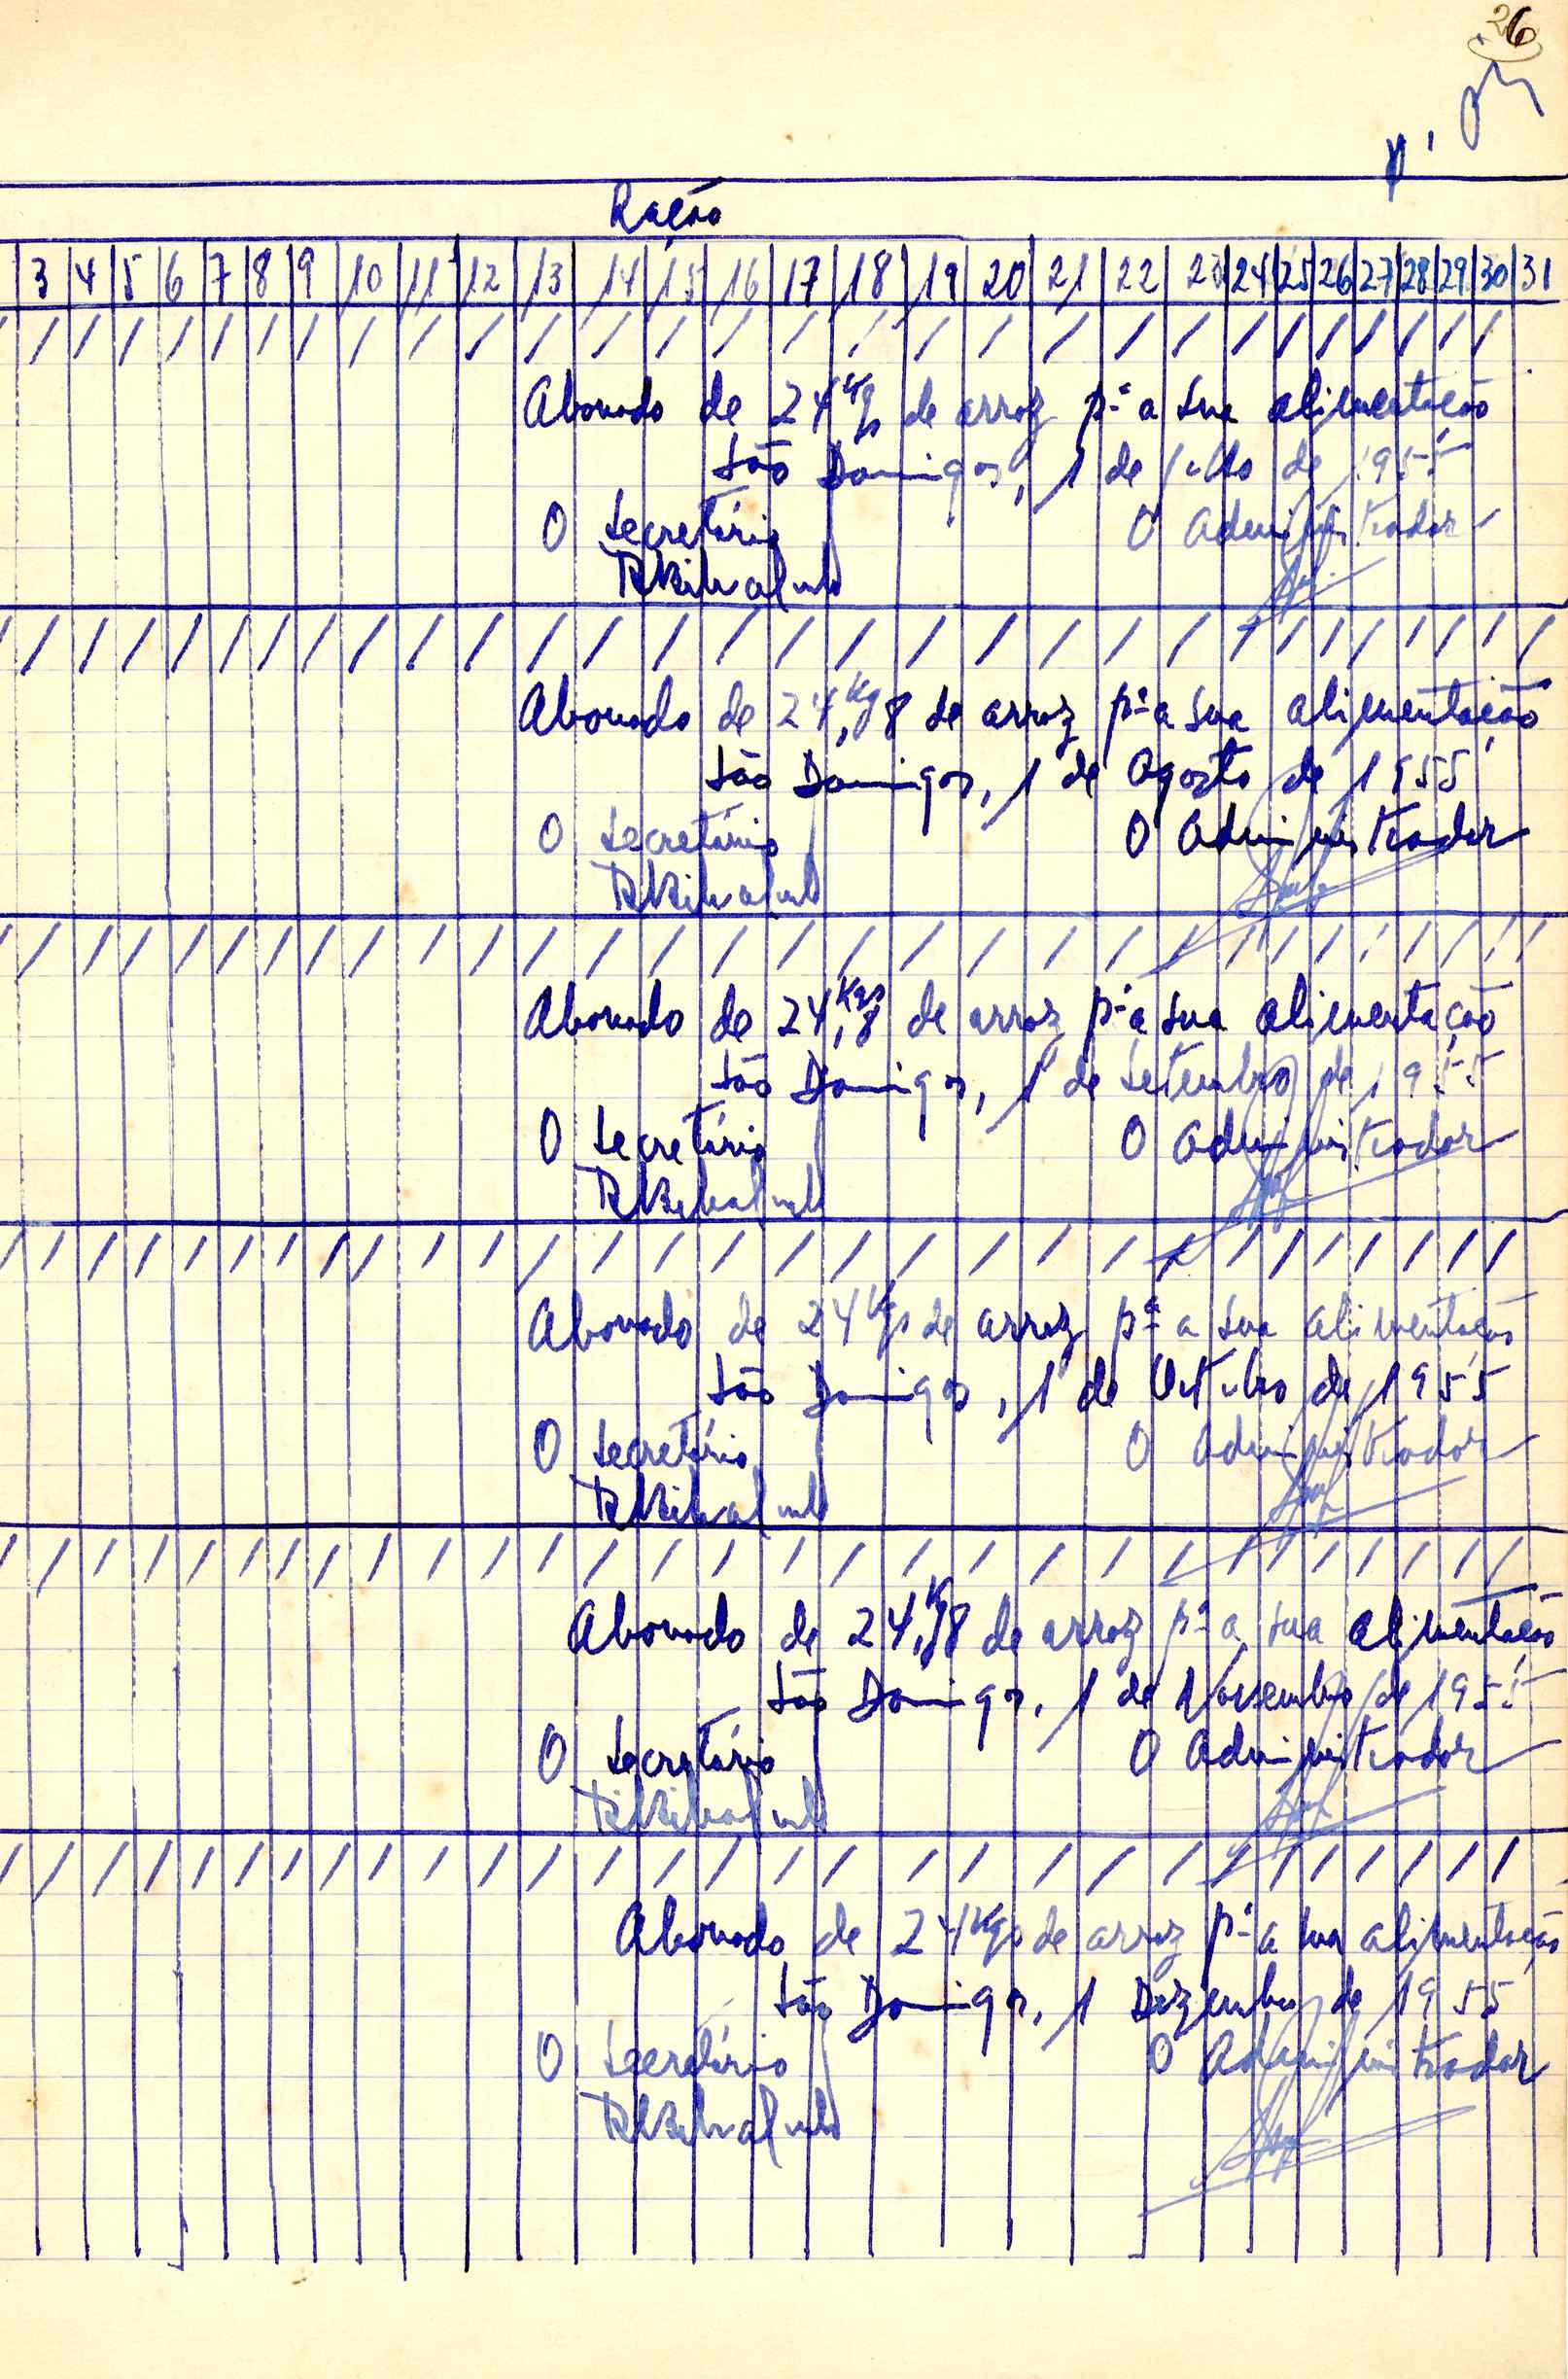 26
Ração
3 4 5 6 7 8 9 10 11 12 13 14 15 16 17 18 19 20 21 22 23 24 25 26 27 28 29 30 31
/ / / / / / / / / / / / / / / / / / / / / / / / / / / / /
Abonado de 24 Kgs de arroz pª a sua alimentação
São Domingos, 1 de Julho de 1955
O Secretário O Administrador
/ / / / / / / / / / / / / / / / / / / / / / / / / / / / / /
Abonado de 24,Kg8 de arroz pª a sua alimentação
São Domingos, 1 de Agosto de 1955
O Secretário O Administrador
/ / / / / / / / / / / / / / / / / / / / / / / / / / / / / /
Abonado de 24,Kgs8 de arroz pª a sua alimentação
São Domingos, 1 de Setembro de 1955
O Secretário O Administrador
/ / / / / / / / / / / / / / / / / / / / / / / / / / / / /
Abonado de 24 Kgs de arroz pª a sua alimentação
São Domingos, 1 de Outubro de 1955
O Secretário O Administrador
/ / / / / / / / / / / / / / / / / / / / / / / / / / / / /
Abonado de 24,Kg8 de arroz pª a sua alimentação
São Domingos, 1 de Novembro de 1955
O Secretário O Administrador
/ / / / / / / / / / / / / / / / / / / / / / / / / / / / /
Abonado de 24 Kgs de arroz pª a sua alimentação
São Domingos, 1 Dezembro de 1955
O Secretário O Administrador